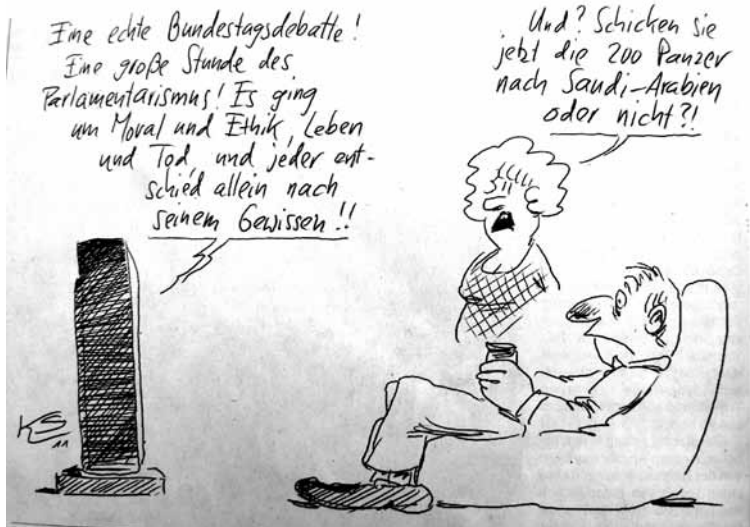 Eine echte Bundestagsdebatte!
Eine große Stunde des
Parlamentarismus! Es ging
um Moral und Ethik, Leben
und Tod, und jeder ent-
schied allein nach
seinem Gewissen!!
Und? Schicken sie
jetzt die 200 Panzer
nach Saudi-Arabien
oder nicht?!
KS
11